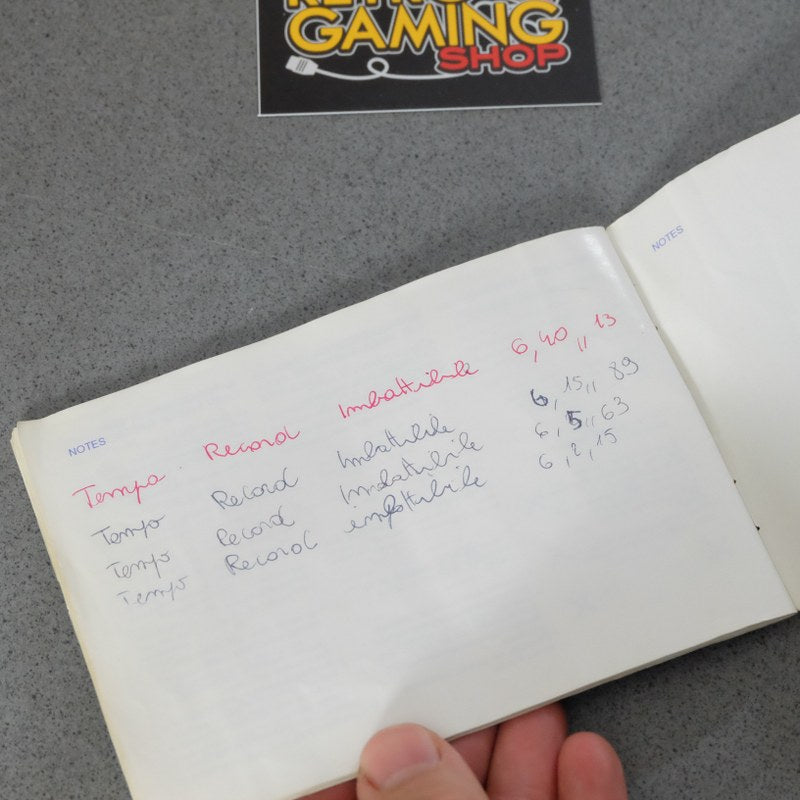 RETRO
GAMING
SHOP
NOTES
NOTES
Tempo Record Imbattibile 6,40,,13
Tempo Record Imbattibile 6,15,,89
Tempo Record Imbattibile 6,5,,63
Tempo Record imbattibile 6,2,15